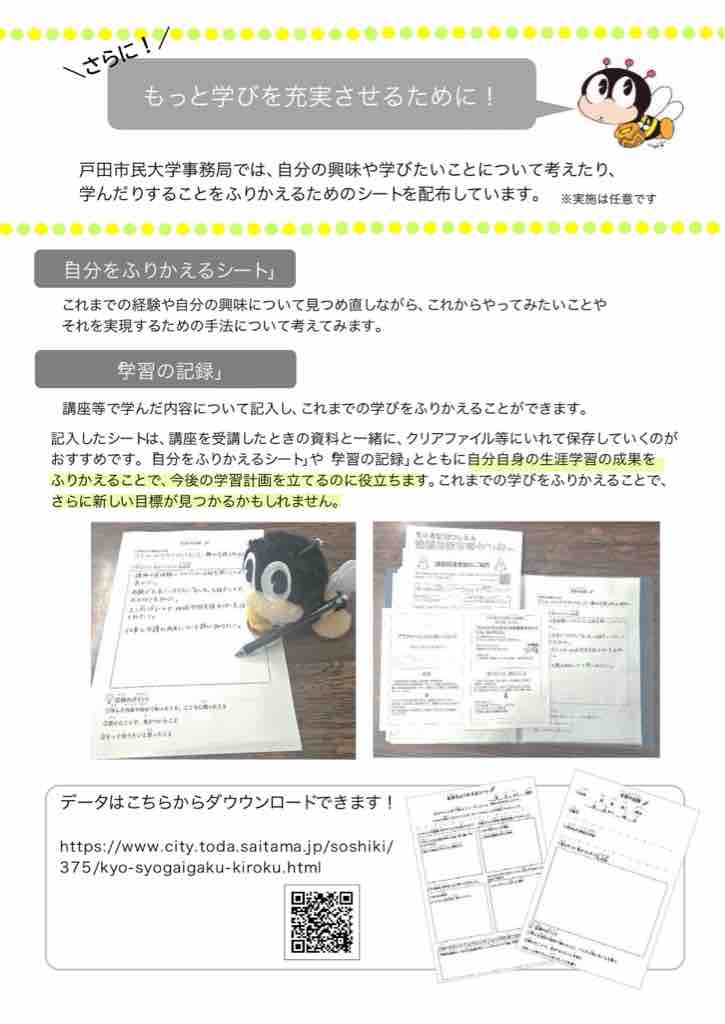 ＼さらに！／
もっと学びを充実させるために！
戸田市民大学事務局では、自分の興味や学びたいことについて考えたり、
学んだりすることをふりかえるためのシートを配布しています。 ※実施は任意です
「自分をふりかえるシート」
これまでの経験や自分の興味について見つめ直しながら、これからやってみたいことや
それを実現するための手法について考えてみます。
「学習の記録」
講座等で学んだ内容について記入し、これまでの学びをふりかえることができます。
記入したシートは、講座を受講したときの資料と一緒に、クリアファイル等にいれて保存していくのが
おすすめです。「自分をふりかえるシート」や「学習の記録」とともに自分自身の生涯学習の成果を
ふりかえることで、今後の学習計画を立てるのに役立ちます。これまでの学びをふりかえることで、
さらに新しい目標が見つかるかもしれません。
データはこちらからダウウンロードできます！
https://www.city.toda.saitama.jp/soshiki/
375/kyo-syogaigaku-kiroku.html